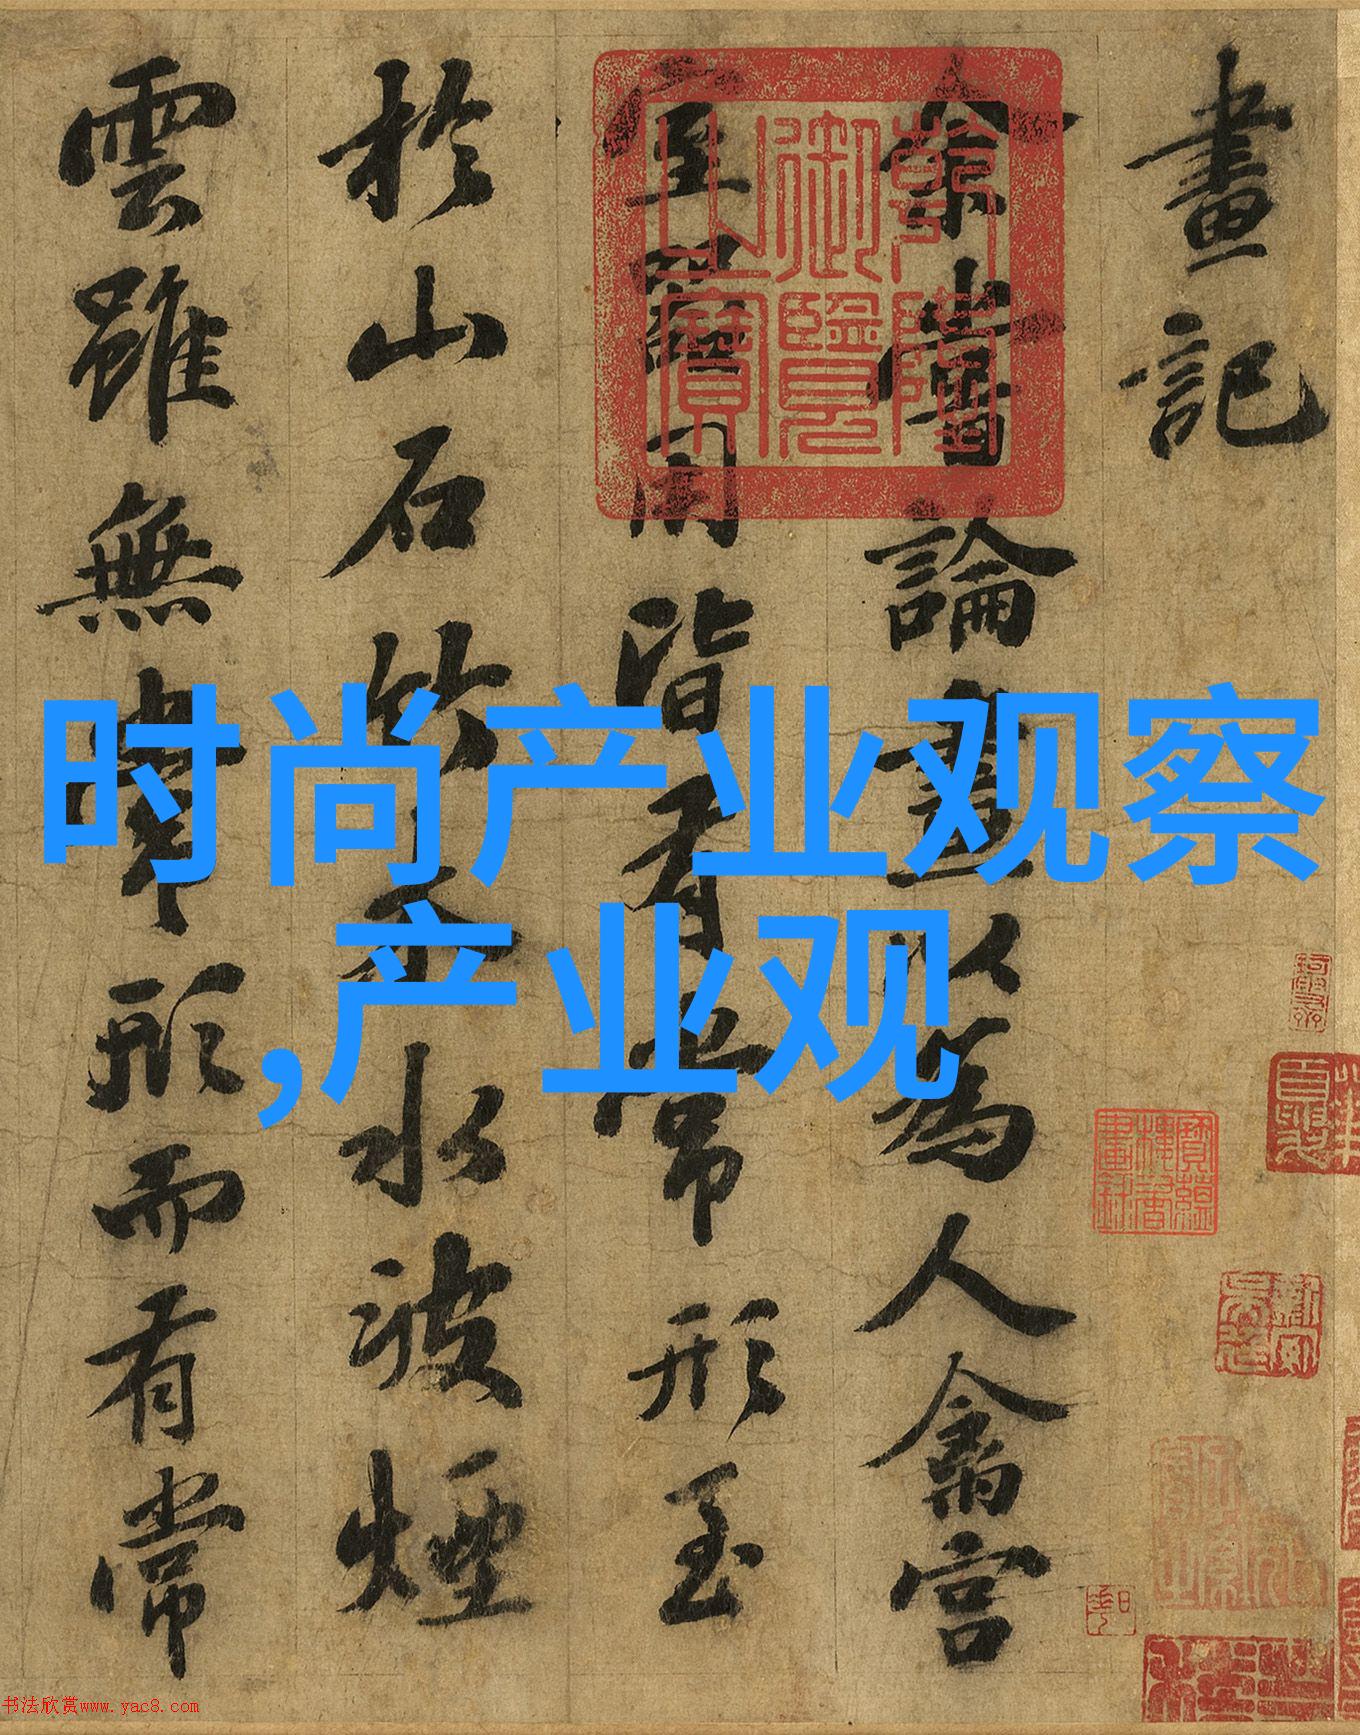 时尚产业观察
,产业观
畫記
余嘗論畫以為人禽宮
室器用皆有常形至
於山石竹木水波煙
雲雖無常形而有常
乾隆御覽之寶
书法欣赏www.yac8.com